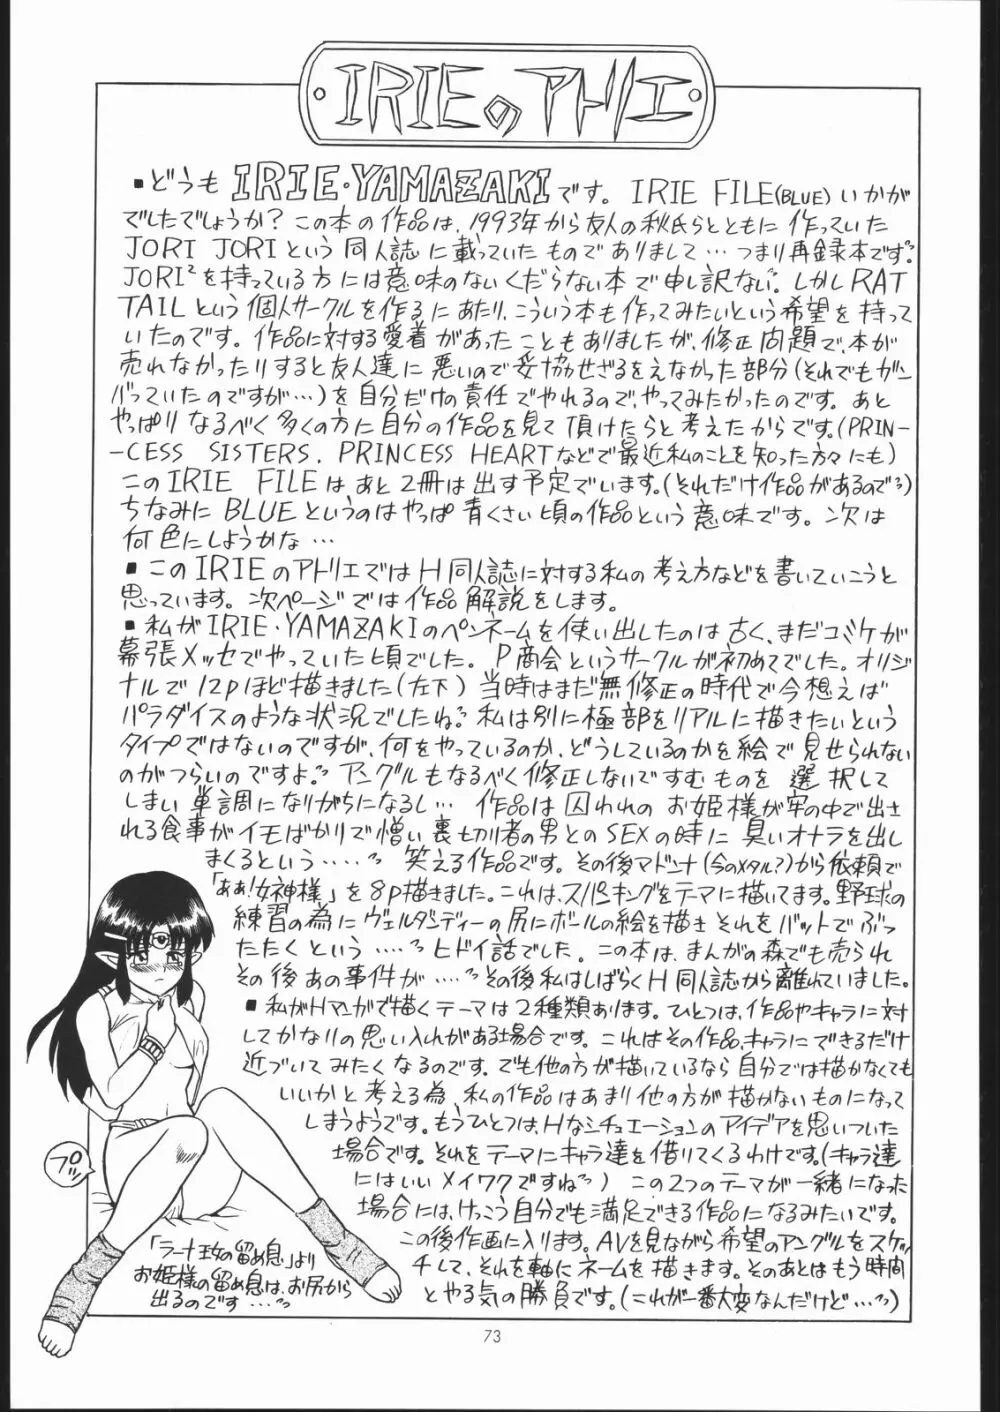 IRIEのアトリエ
■どうも IRIE・YAMAZAKIです。 IRIE FILE(BLUE)いかが
でしたでしょうか? この本の作品は、1993年から友人の秋氏らとともに作っていた
JORI JORIという同人誌に載っていたものでありまして…つまり再録本です。
JORI²を持っている方には意味のないくだらない本で申し訳ない。しかしRAT
TAILという個人サークルを作るにあたり、こういう本も作ってみたいという希望を持って
いたのです。作品に対する愛着があったこともありましたが、修正問題で、本が
売れなかったりすると友人達に悪いので妥協せざるをえなかった部分(それでもガン
バっていたのですが…)を自分だけの責任でやれるので、やってみたかったのです。あと
やっぱりなるべく多くの方に自分の作品を見て頂けたらと考えたからです。(PRIN-
-CESS SISTERS. PRINCESS HEARTなどで最近私のことを知った方々にも)
このIRIE FILEはあと2冊は出す予定でいます。(それだけ作品があるので)
ちなみにBLUEというのはやっぱ青くさい頃の作品という意味です。次は
何色にしようかな…
■このIRIEのアトリエではH同人誌に対する私の考え方などを書いていこうと
思っています。次ページでは作品解説をします。
■私がIRIE・YAMAZAKIのペンネームを使い出したのは古く、まだコミケが
幕張メッセでやっていた頃でした。P商会というサークルが初めてでした。オリジ
ナルで12pほど描きました(左下)当時はまだ無修正の時代で今想えば
パラダイスのような状況でしたね。私は別に極部をリアルに描きたいという
タイプではないのですが、何をやっているのか、どうしているのかを絵で見せられない
のがつらいのですよ。アングルもなるべく修正しないですむものを選択して
しまい単調になりがちになるし… 作品は囚われのお姫様が牢の中で出さ
れる食事がイモばかりで憎い裏切り者の男とのSEXの時に臭いオナラを出し
まくるという…… 笑える作品です。その後マドンナ(今のメタル?)から依頼で
「ああ!女神様」を8p描きました。これは、スパンキングをテーマに描いてます。野球の
練習の為にヴェルダンディーの尻にボールの絵を描きそれをバットでぶっ
たたくという…… ヒドイ話でした。この本は、まんがの森でも売られ
その後あの事件が…… その後私はしばらくH同人誌から離れていました。
■私がHマンガで描くテーマは2種類あります。ひとつは、作品やキャラに対
してかなりの思い入れがある場合です。これはその作品、キャラにできるだけ
近づいてみたくなるのです。でも他の方が描いているなら自分では描かなくても
いいかと考える為、私の作品はあまり他の方が描かないものになって
しまうようです。もうひとつは、Hなシチュエーションのアイデアを思いついた
場合です。それをテーマにキャラ達を借りてくるわけです。(キャラ達
にはいいメイワクですね)この2つのテーマが一緒になった
場合には、けっこう自分でも満足できる作品になるみたいです。
この後作画に入ります。AVを見ながら希望のアングルをスケッ
チして、それを軸にネームを描きます。そのあとはもう時間
とやる気の勝負です。(これが一番大変なんだけど…)
プゥ
「ラーナ王女の留め息」より
お姫様の留め息は、お尻から
出るのです……
73